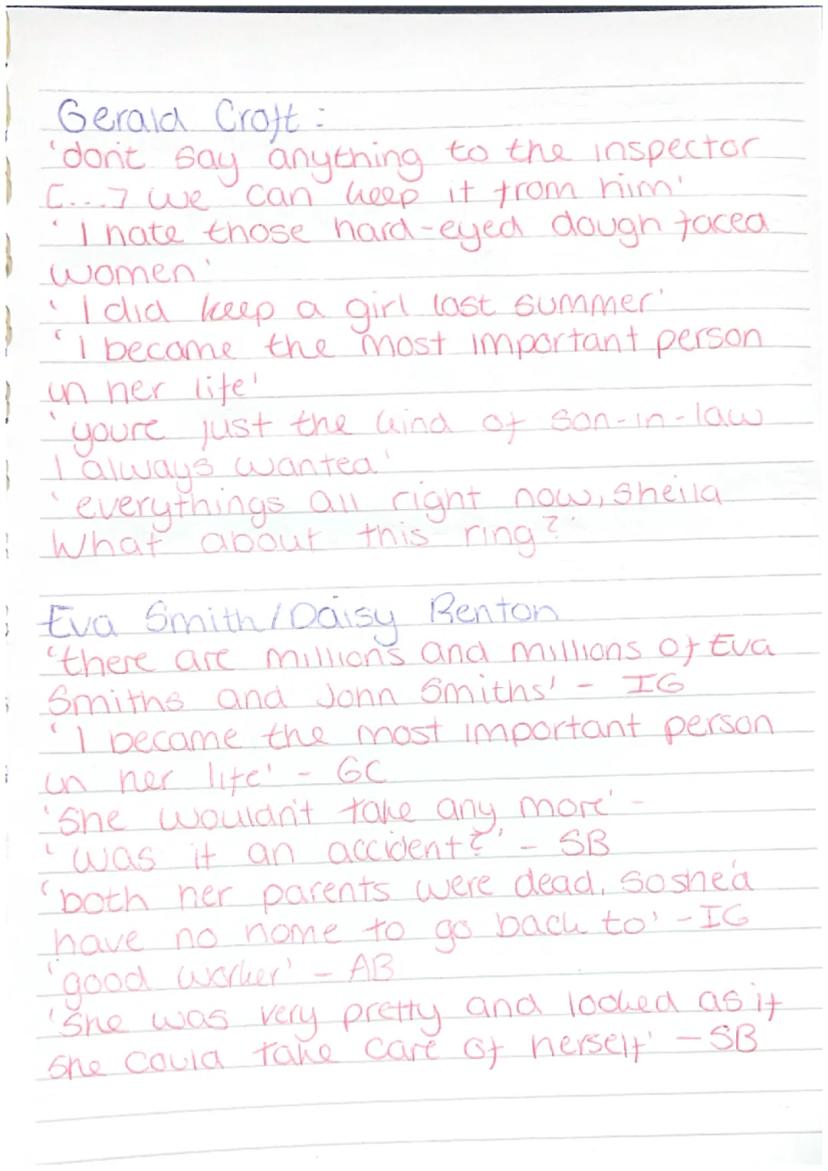 Gerald Croft:
'don't say anything to the inspector
[...] we can keep it from him'
'I hate those hard-eyed dough faced
women'
'I did keep a girl last summer'
'I became the most important person
in her life'
'youre just the kind of son-in-law
I always wanted'
'everythings all right now, Sheila
What about this ring?'
Eva Smith/Daisy Renton
'there are millions and millions of Eva
Smiths and John Smiths' - IG
'I became the most important person
in her life' - GC
'She wouldn't take any more' -
'was it an accident?' - SB
'both her parents were dead, so she'd
have no home to go back to' - IG
'good worker' - AB
'She was very pretty and looked as if
she could take care of herself' - SB